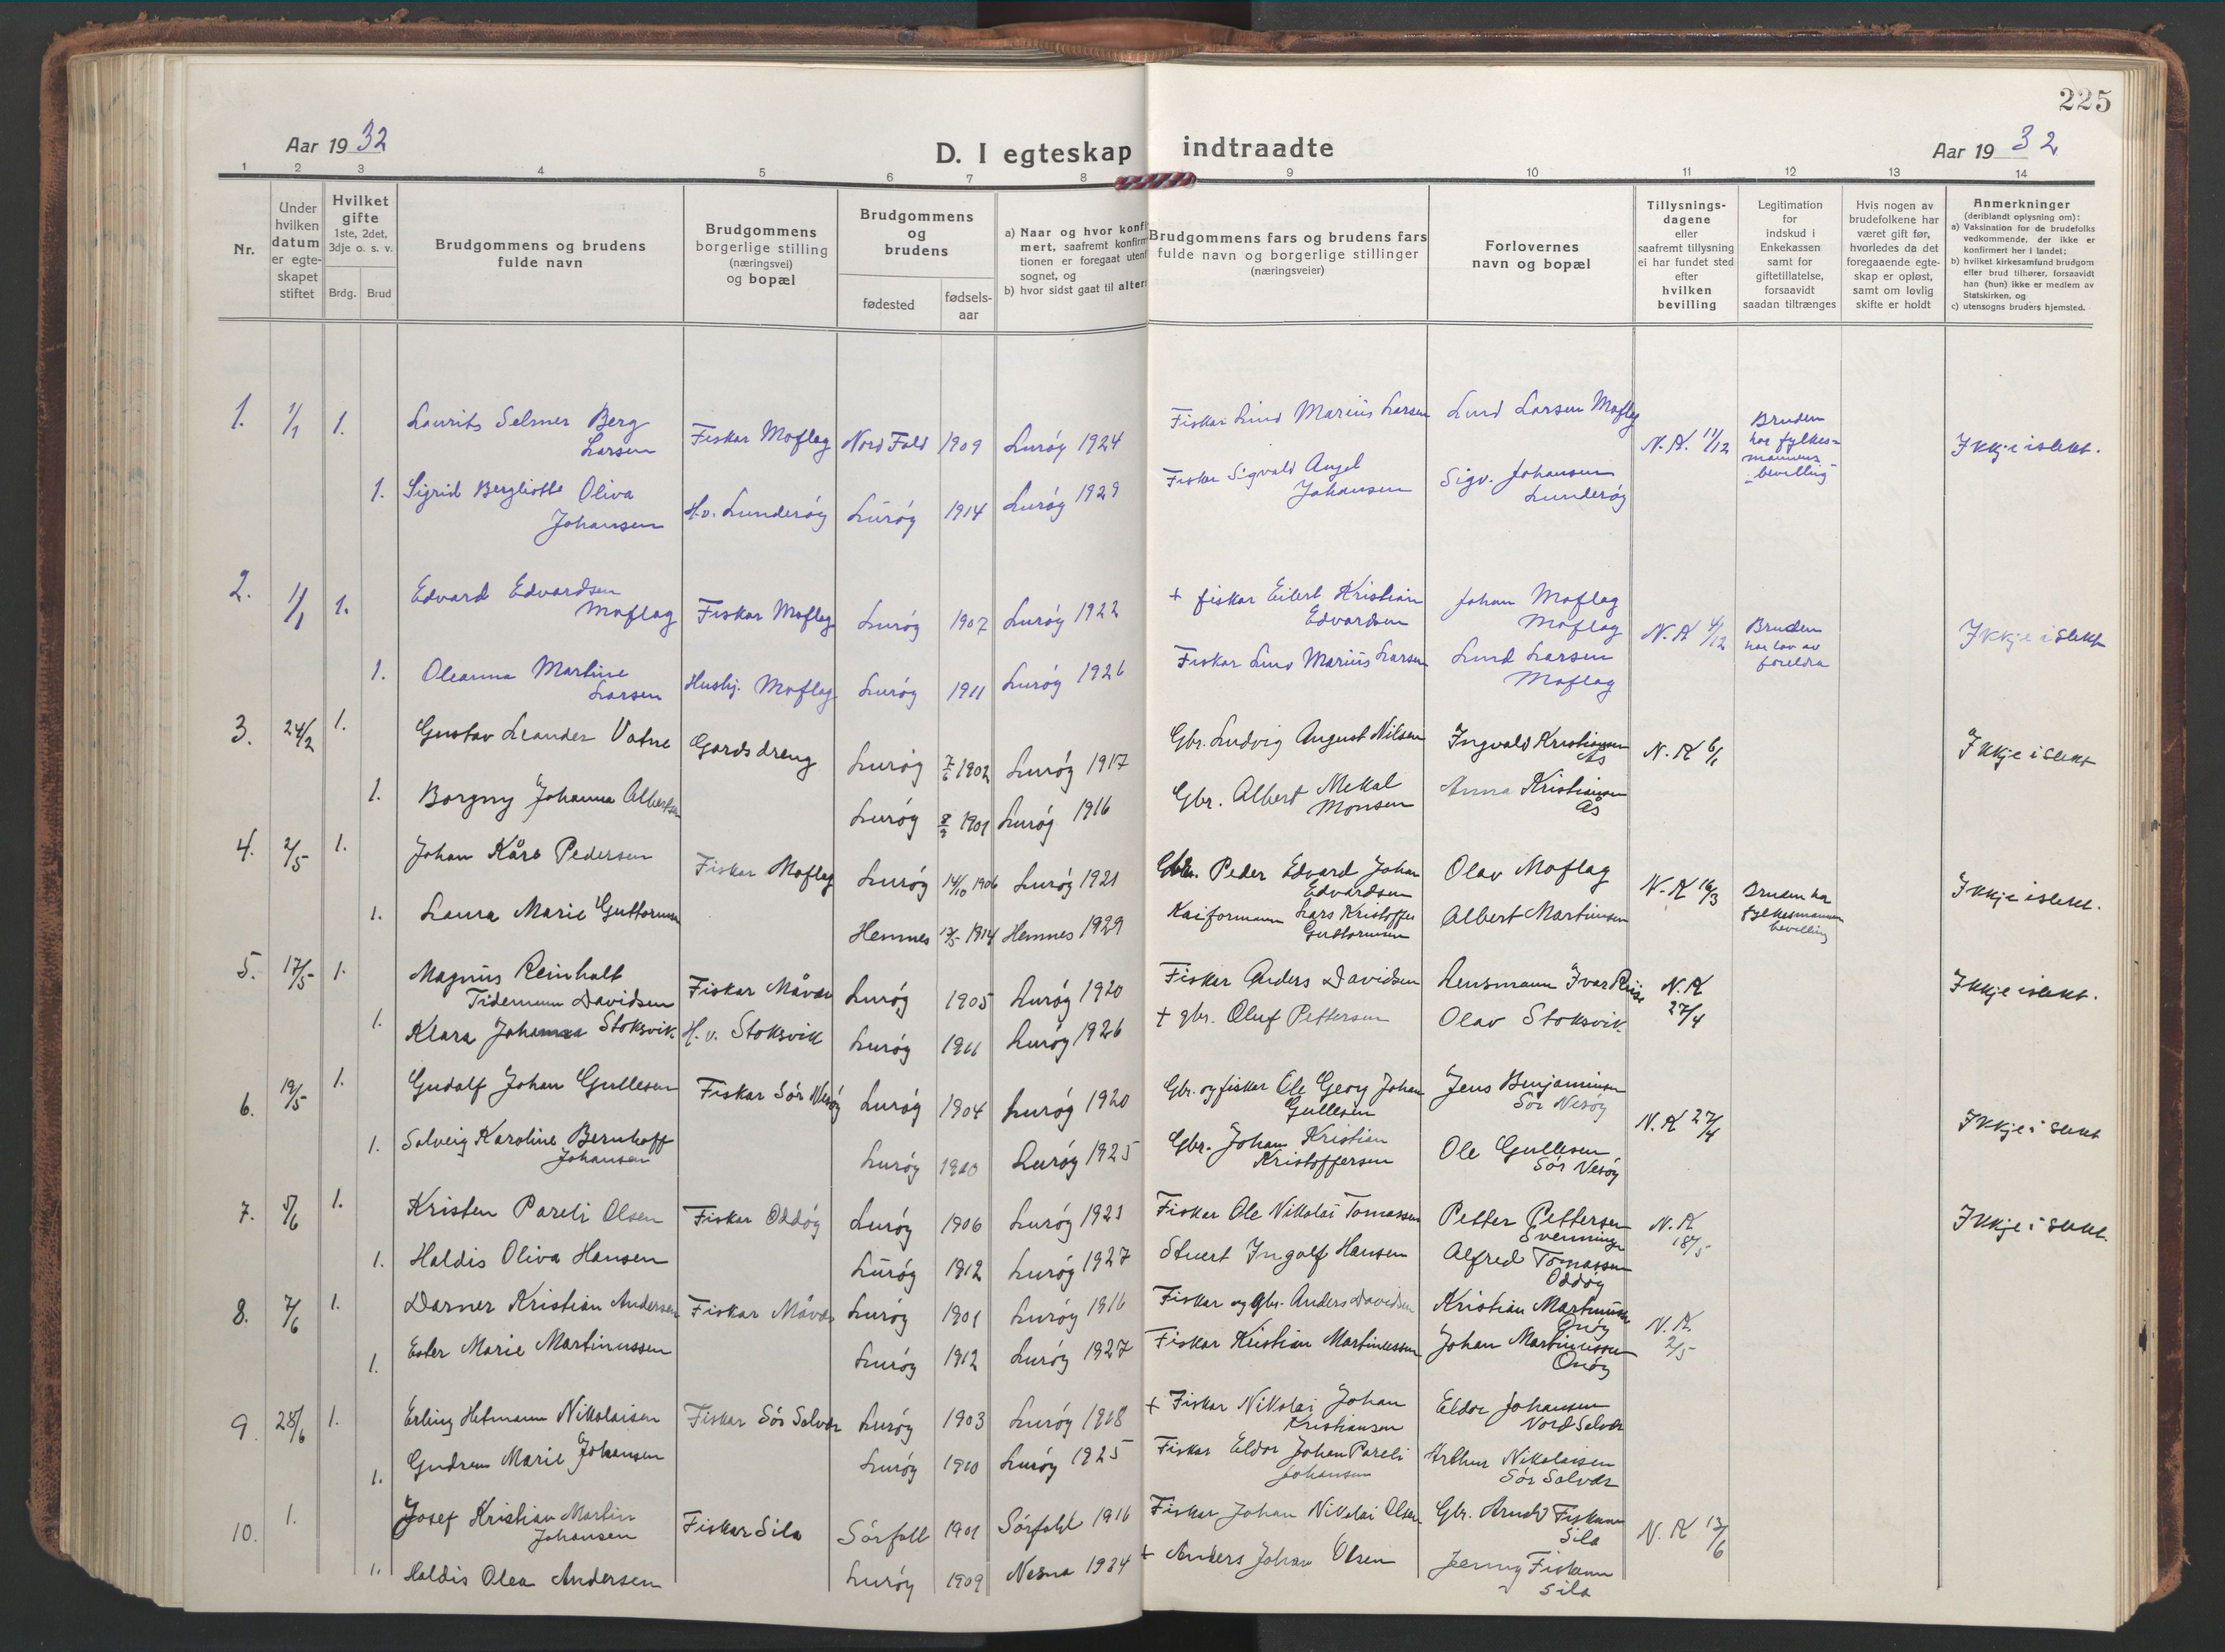 225
Aar 19 32
D. I egteskap indtraadte
Aar 19 32
1 2 3 4 5 6 7 8 9 10 11 12 13 14
Nr.
Under
hvilken
datum
er egte-
skapet
stiftet
Hvilket
gifte
1ste, 2det,
3dje o. s. v.
Brdg. Brud
Brudgommens og brudens
fulde navn
Brudgommens
borgerlige stilling
(næringsvei)
og bopæl
Brudgommens
og
brudens
fødested
fødsels-
aar
a) Naar og hvor konfi
mert, saafremt konfirm
tionen er foregaat uten
sognet, og
b) hvor sidst gaat til alter
Brudgommens fars og brudens fars
fulde navn og borgerlige stillinger
(næringsveier)
Forlovernes
navn og bopæl
Tillysnings-
dagene
eller
saafremt tillysning
ei har fundet sted
efter
hvilken
bevilling
Legitimation
for
indskud i
Enkekassen
samt for
giftetillatelse,
forsaavidt
saadan tiltrænges
Hvis nogen av
brudefolkene har
været gift før,
hvorledes da det
foregaaende egte-
skap er opløst,
samt om lovlig
skifte er holdt
Anmerkninger
(deriblandt oplysning om):
a) Vaksination for de brudefolks
vedkommende, der ikke er
konfirmert her i landet;
b) hvilket kirkesamfund brudgom
eller brud tilhører, forsaavidt
han (hun) ikke er medlem av
Statskirken, og
c) utensogns bruders hjemsted.
1. 1/1 1. Laurits Selmer Berg
Larsen Fiskar Moflag Nord Fold 1909 Lurøy 1924 Fiskar Lind Marius Larsen Lind Larsen Moflag N.K. 11/12 Bruden
har fylkes-
mannens
bevilling Ikkje i slekt.
1. Sigrid Bergliotte Oliva
Johansen H.v. Lunderøy Lurøy 1914 Lurøy 1929 Fiskar Sigvald Angel
Johansen Sigv. Johansen
Lunderøy
2. 1/1 1. Edvard Edvardsen
Moflag Fiskar Moflag Lurøy 1907 Lurøy 1922 + fiskar Eilert Kristian
Edvardsen Johan Moflag
Moflag N.K 4/12 Bruden
har lov av
foreldra Ikkje i slekt
1. Oleanna Martine
Larsen Hushj. Moflag Lurøy 1911 Lurøy 1926 Fiskar Lind Marius Larsen Lind Larsen
Moflag
3. 24/2 1. Gustav Leander Vatne Gardsdreng Lurøy 7/6 1902 Lurøy 1917 Gbr. Ludvig August Nilsen Ingvald Kristiansen
Ås N.K 6/1 Ikkje i slekt
1. Borgny Johanna Albertsen Lurøy 1901 Lurøy 1916 Gbr. Albert Mekal
Monsen Anna Kristiansen
Ås
4. 2/5 1. Johan Kåre Pedersen Fiskar Moflag Lurøy 14/10 1906 Lurøy 1921 Gbr. Peder Edvard Johan
Edvardsen Olav Moflag N.K 16/3 Bruden har
fylkesmannen
bevilling Ikkje i slekt.
1. Laura Marie Guttormsen Hemnes 1914 Hemnes 1929 Kaiformann Lars Kristoffer
Guttormsen Albert Martinsen
5. 17/5 1. Magnus Reinholt
Tidemann Davidsen Fiskar Måvær Lurøy 1905 Lurøy 1920 Fiskar Anders Davidsen Lensmann Ivar Riise N.K
27/4 Ikkje i slekt.
1. Klara Johanna Stoksvik H.v. Stoksvik Lurøy 1911 Lurøy 1926 + gbr. Oluf Pettersen Olav Stoksvik
6. 19/5 1. Gudolf Johan Gullesen Fiskar Sør Nesøy Lurøy 1904 Lurøy 1920 Gbr. og fiskar Ole Georg Johan
Gullesen Jens Benjaminsen
Sør Nesøy N.K 27/4 Ikkje i slekt
1. Solveig Karoline Bernhoff
Johansen Lurøy 1910 Lurøy 1925 Gbr. Johan Kristian
Kristoffersen Ole Gullesen
Sør Nesøy
7. 5/6 1. Kristen Pareli Olsen Fiskar Oddøy Lurøy 1906 Lurøy 1921 Fiskar Ole Nikolai Tomassen Petter Pettersen
Svenningen N.K
18/5 Ikkje i slekt.
1. Haldis Oliva Hansen Lurøy 1912 Lurøy 1927 Stuert Ingolf Hansen Alfred Tomassen
Oddøy
8. 7/6 1. Darner Kristian Andersen Fiskar Måvær Lurøy 1901 Lurøy 1916 Fiskar og Gbr. Anders Davidsen Kristian Martinussen
Onøy N.K.
2/5
1. Ester Marie Martinussen Lurøy 1912 Lurøy 1927 Fiskar Kristian Martinussen Johan Martinussen
Onøy
9. 28/6 1. Erling Hetmann Nikolaisen Fiskar Sør Solvær Lurøy 1903 Lurøy 1918 + Fiskar Nikolai Johan
Kristiansen Eldor Johansen
Nord Solvær
1. Gudrun Marie Johansen Lurøy 1910 Lurøy 1925 Fiskar Eldor Johan Pareli
Johansen Arthur Nikolaisen
Sør Solvær
10. 1. Josef Kristian Martin
Johansen Fiskar Sila Sørfold 1901 Sørfold 1916 Fiskar Johan Nikolai Olsen Gbr. Arndt Fiskum
Sila N.K 13/6
1. Haldis Olea Andersen Lurøy 1909 Nesna 1924 + Anders Johan Olsen Jenny Fiskum
Sila